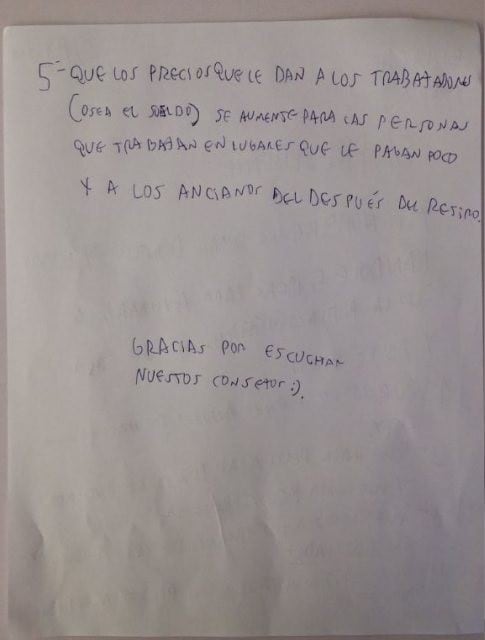 5- QUE LOS PRECIOS QUE LE DAN A LOS TRABAJADORES
(OSEA EL SUELDO) SE AUMENTE PARA LAS PERSONAS
QUE TRABAJAN EN LUGARES QUE LE PAGAN POCO
Y A LOS ANCIANOS DEL DESPUÉS DEL RETIRO.
GRACIAS POR ESCUCHAR
NUESTOS CONSEJOS :).